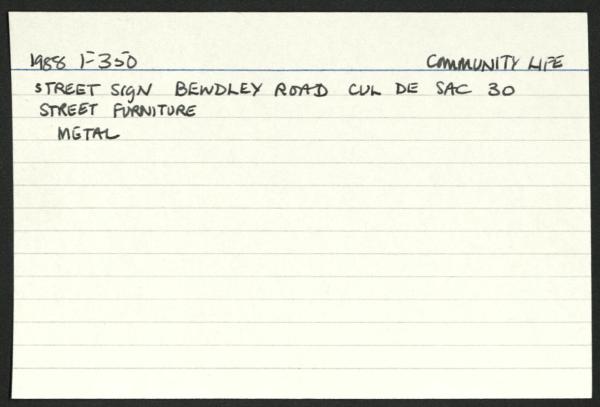 1988 F350 COMMUNITY LIFE
STREET SIGN BEWDLEY ROAD CUL DE SAC 30
STREET FURNITURE
METAL